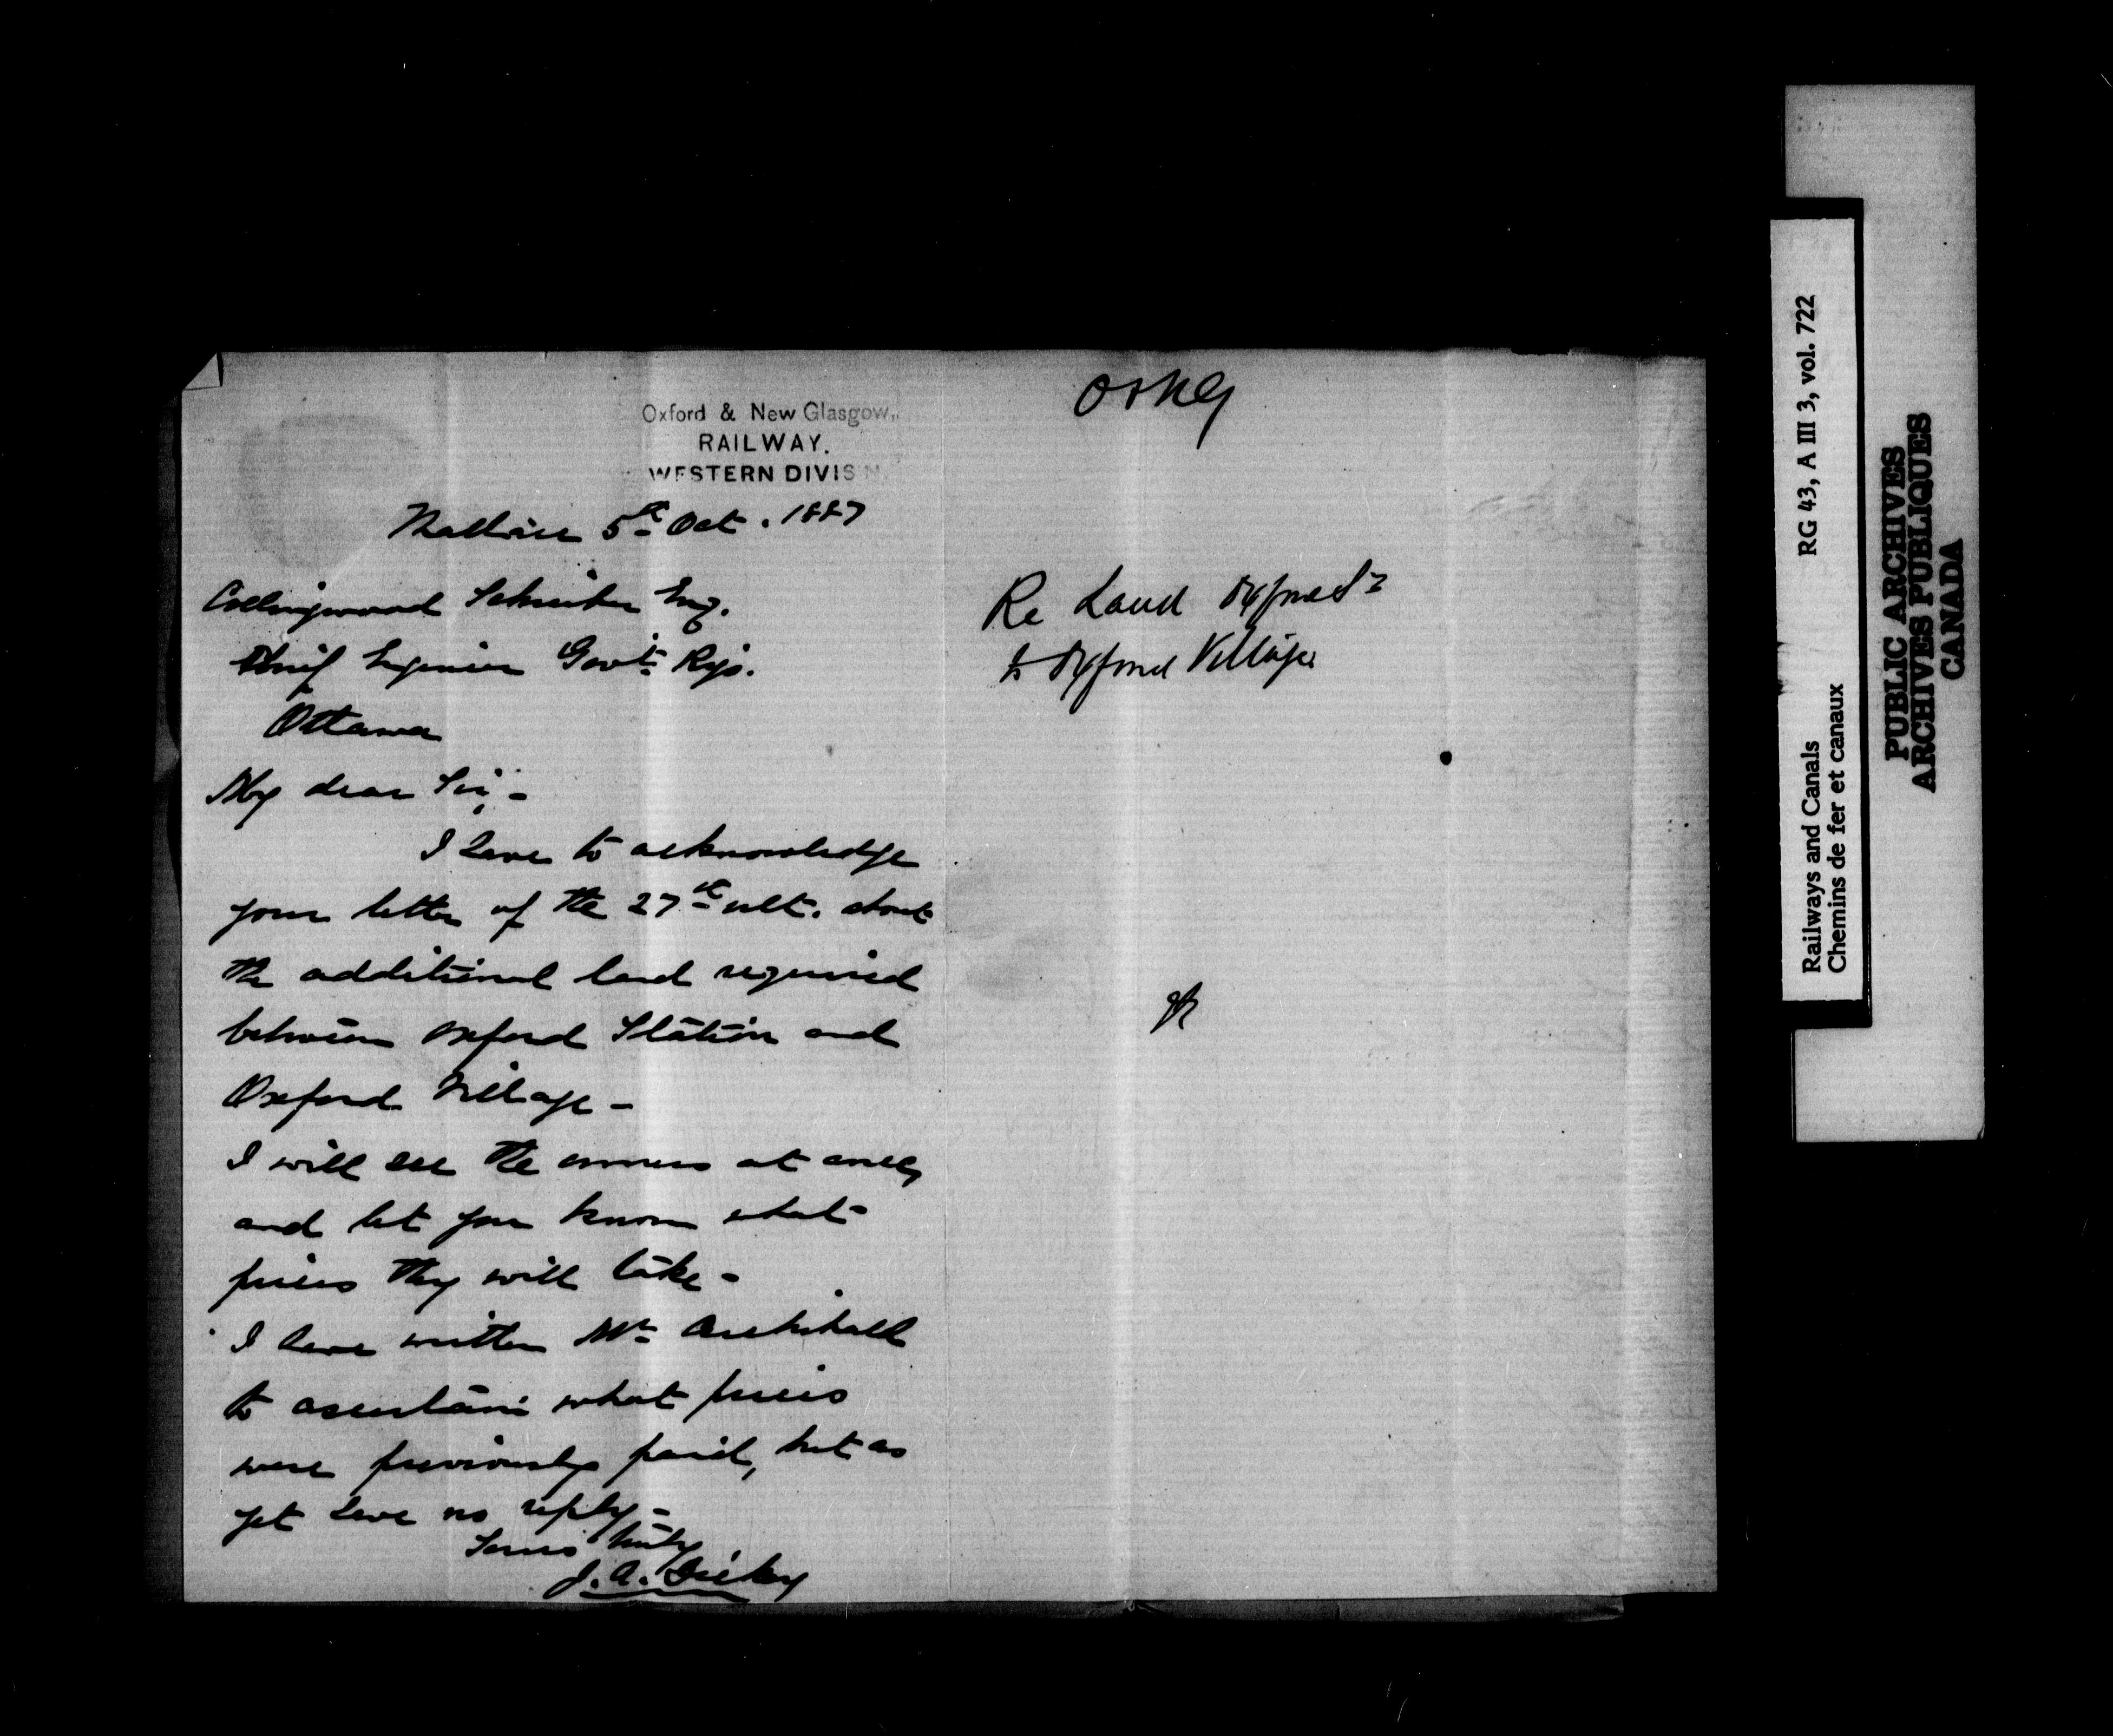 Oxford & New Glasgow,
RAILWAY.
WESTERN DIVIS N.
Wallace 5th Oct. 1887
Collingwood Schreiber Esq.
Chief Engineer Govt. Rys.
Ottawa
My dear Sir,-
I have to acknowledge
your letter of the 27th ult. about
the additional land required
between Oxford Station and
Oxford Village -
I will see the owners at once,
and let you know what
prices they will take -
I have written Mr Archibald
to ascertain what prices
were previously paid, but as
yet have no reply -
Yours truly
J. A. Dickey
O & NG
Re Land Oxford Sn
to Oxford Village
Railways and Canals RG 43, A III 3, vol. 722
Chemins de fer et canaux
PUBLIC ARCHIVES
ARCHIVES PUBLIQUES
CANADA